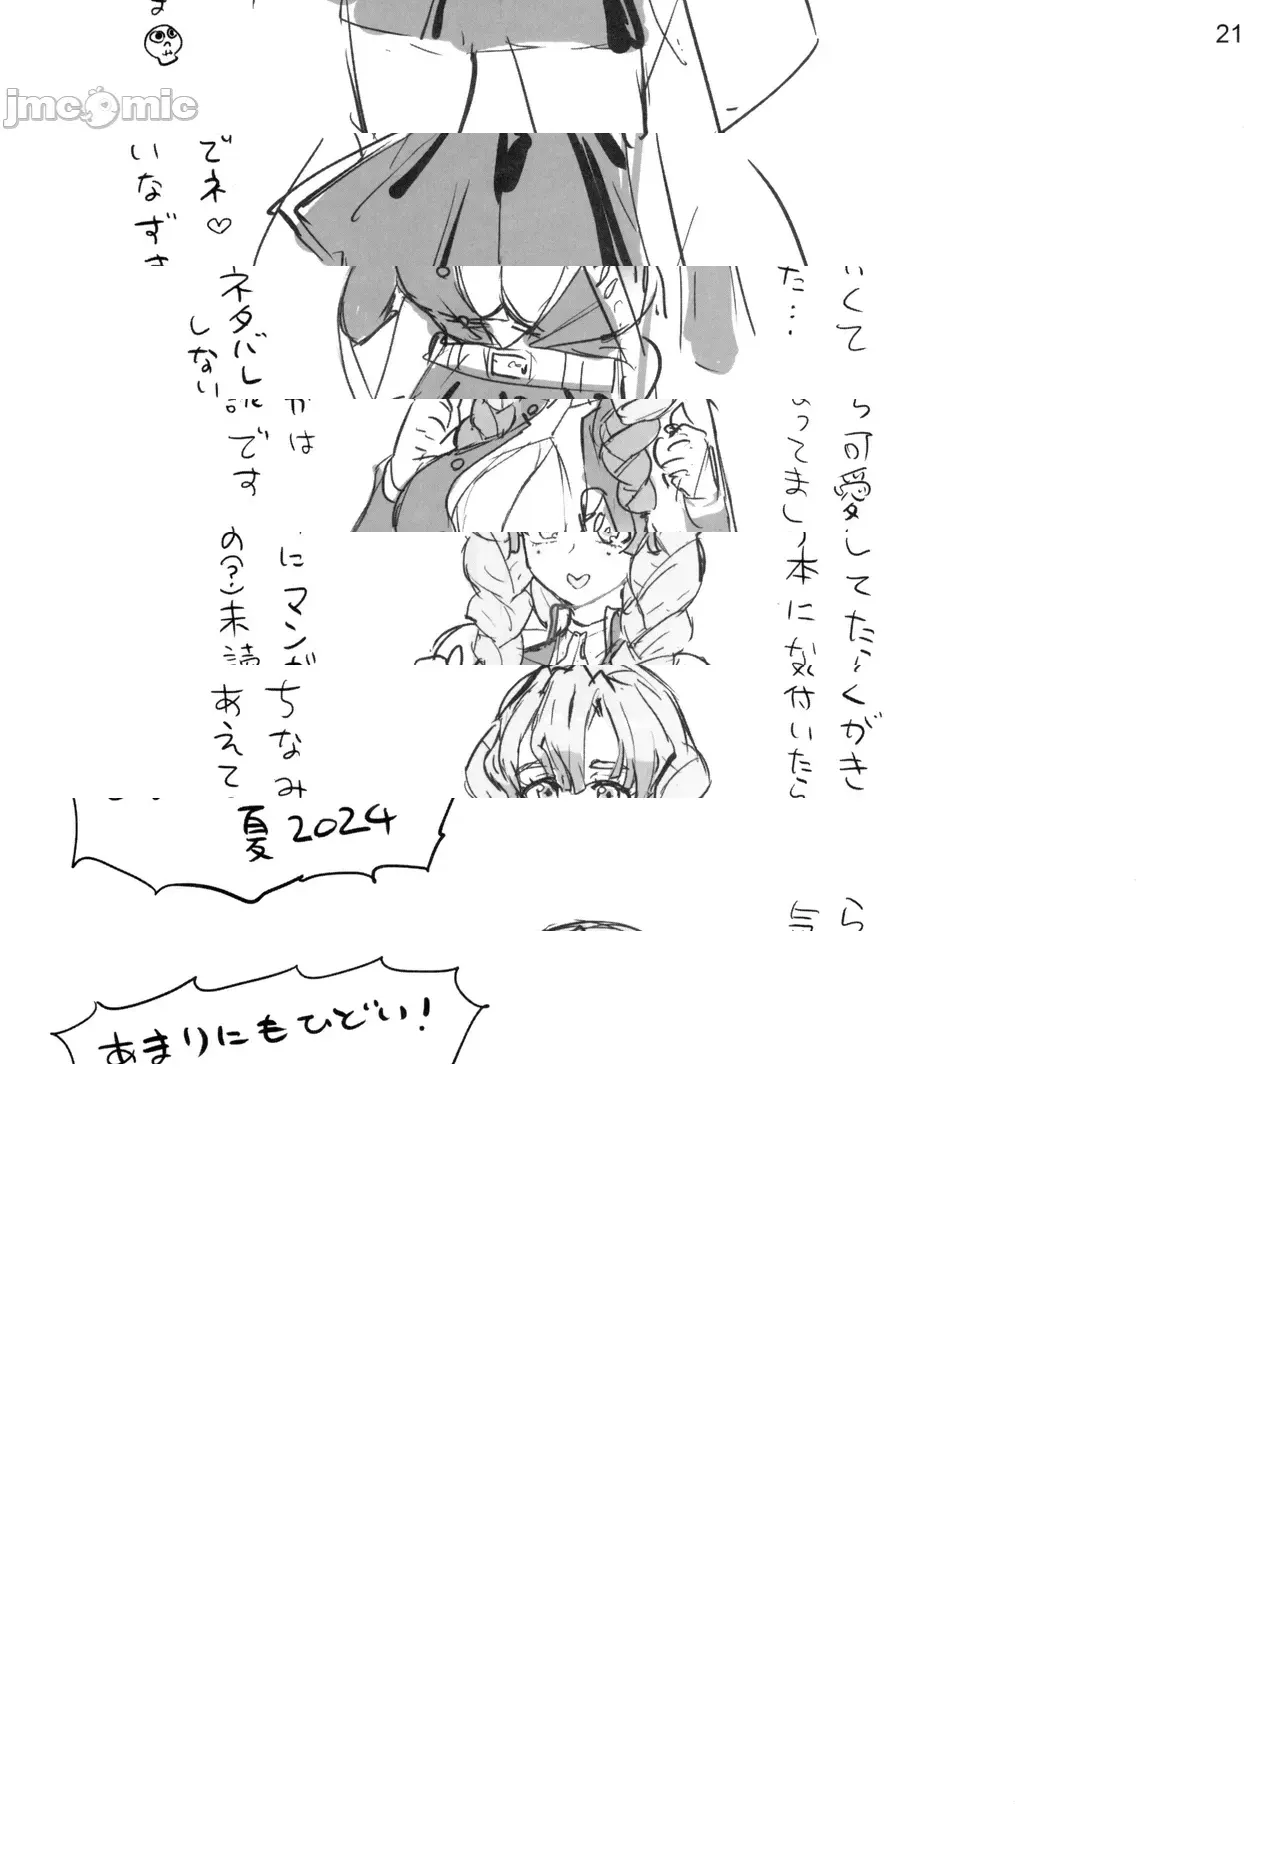 21
ま
jmcomic
でネ♡
いなずさ
いくて
た…
ネタバレ
しない
ら可愛
ってまし
かは
読です
してた…くがき
本に気付いたら
にマンガ
の(?)未読
ちなみ
あえて
夏2024
ら
気
あまりにもひどい!